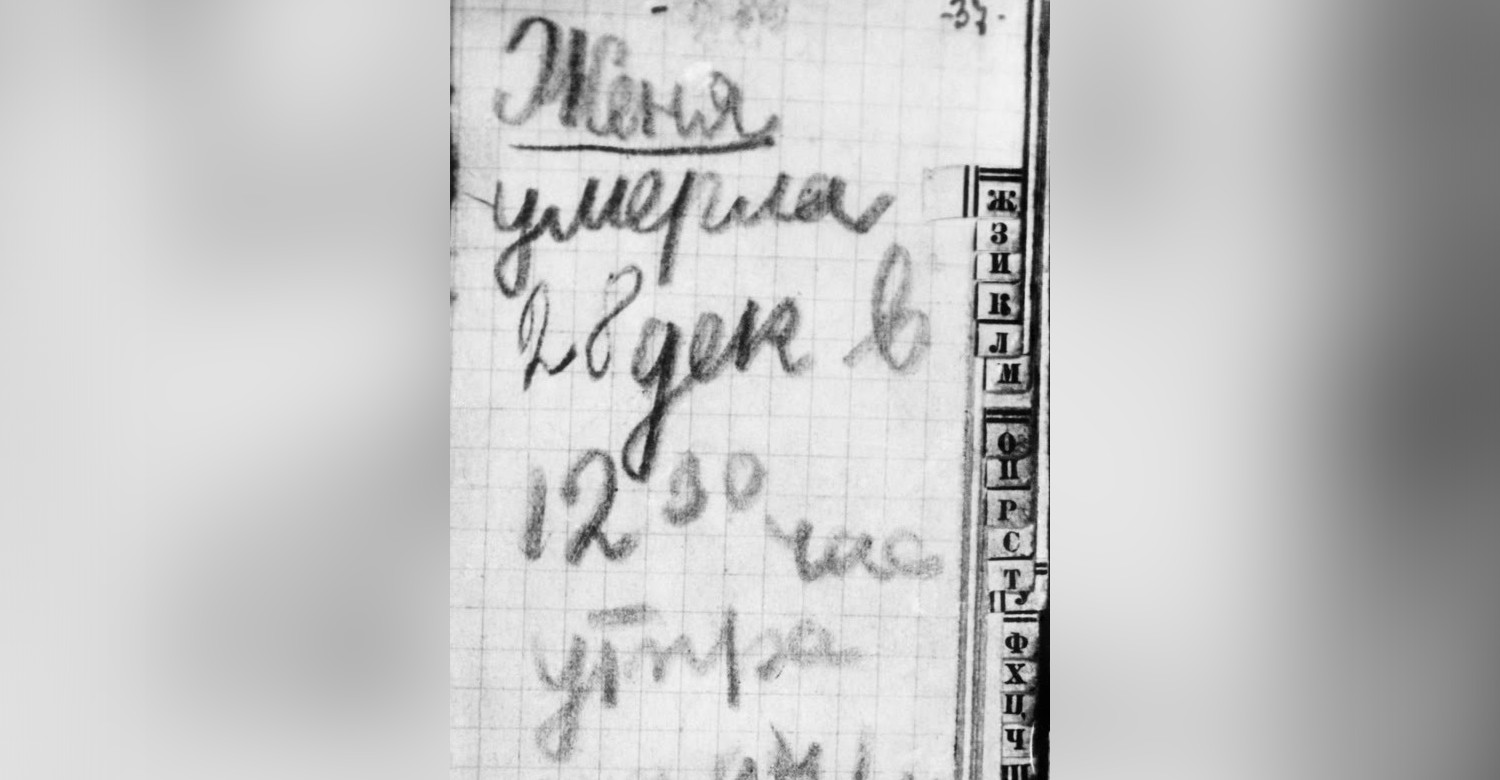 -37-
Женя
умерла
28 дек в
12 30 час
утра
Ж
З
И
К
Л
М
О
П
Р
С
Т
У
Ф
Х
Ц
Ч
Ш